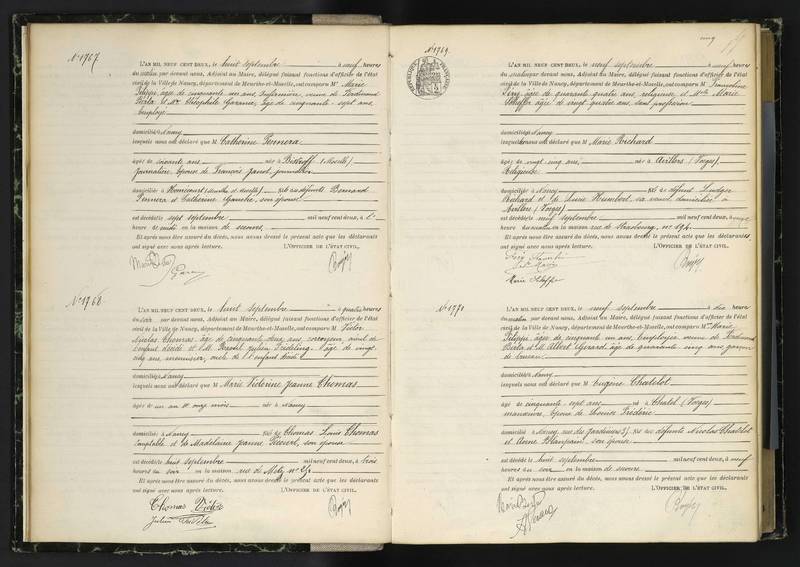 N° 1767
L'AN MIL NEUF CENT DEUX, le huit septembre à neuf heures
du matin par devant nous, Adjoint au Maire, délégué faisant fonctions d'officier de l'état
civil de la Ville de Nancy, département de Meurthe-et-Moselle, ont comparu Mme Marie
Philippe, âgée de cinquante un ans, Infirmière, veuve de Ferdinand
et Mr Théophile Garance, âgé de cinquante sept ans,
Employé
domiciliés à Nancy
lesquels nous ont déclaré que M Catherine
âgée de soixante ans née à (Moselle)
journalière, épouse de François journalier
domiciliée à Homécourt (Meurthe et Moselle) fille de défunts Bernard
et Catherine son épouse
est décédée le sept septembre mil neuf cent deux, à
heure de midi en la maison de secours.
Et après nous être assuré du décès, nous avons dressé le présent acte que les déclarants
ont signé avec nous après lecture. L'OFFICIER DE L'ÉTAT CIVIL,
N° 1768
L'AN MIL NEUF CENT DEUX, le huit septembre à quatre heures
du soir par devant nous, Adjoint au Maire, délégué faisant fonctions d'officier de l'état
civil de la Ville de Nancy, département de Meurthe-et-Moselle, ont comparu M Victor
Nicolas Thomas, âgé de cinquante cinq ans, corroyeur, aïeul de
l'enfant décédé et M Julien âgé de vingt
cinq ans, menuisier, oncle de l'enfant
domiciliés à Nancy
lesquels nous ont déclaré que M Marie Victorine Jeanne Thomas
âgée de un an et onze mois née à Nancy
domiciliée à Nancy fille de Thomas Louis Thomas
comptable et de Madeleine Jeanne son épouse
est décédée le huit septembre mil neuf cent deux, à trois
heures du soir en la maison rue de Metz
Et après nous être assuré du décès, nous avons dressé le présent acte que les déclarants
ont signé avec nous après lecture. L'OFFICIER DE L'ÉTAT CIVIL,
Thomas Victor
Julien
cinq
N° 1769
L'AN MIL NEUF CENT DEUX, le neuf septembre à neuf heures
du par devant nous, Adjoint au Maire, délégué faisant fonctions d'officier de l'état
civil de la Ville de Nancy, département de Meurthe-et-Moselle, ont comparu M Francoline
âgée de quarante quatre ans, religieuse et Mlle Marie
âgée de vingt quatre ans, sans profession
domiciliés à Nancy
lesquels nous ont déclaré que M Marie Richard
âgée de vingt cinq ans, née à Avillers (Vosges)
Religieuse
domiciliée à Nancy fille de défunt
Richard et de Marie Humbert, sa veuve domiciliée à
Avillers (Vosges)
est décédée le neuf septembre mil neuf cent deux, à
heure du matin en la maison rue de Strasbourg, n° 194.
Et après nous être assuré du décès, nous avons dressé le présent acte que les déclarantes
ont signé avec nous après lecture. L'OFFICIER DE L'ÉTAT CIVIL,
Marie
N° 1770
L'AN MIL NEUF CENT DEUX, le neuf septembre à dix heures
du matin par devant nous, Adjoint au Maire, délégué faisant fonctions d'officier de l'état
civil de la Ville de Nancy, département de Meurthe-et-Moselle, ont comparu Mme Marie
Philippe, âgée de cinquante un ans, Employée, veuve de Ferdinand
et M Albert Gérard, âgé de quarante cinq ans, garçon
de bureau
domiciliés à Nancy
lesquels nous ont déclaré que M Eugène Chatelot
âgé de cinquante sept ans né à Chatel (Vosges)
manœuvre, époux de Louise Frédéric
domicilié à Nancy, rue des Jardiniers fils de défunts Nicolas Chatelot
et Anne son épouse
est décédé le huit septembre mil neuf cent deux, à neuf
heures du soir en la maison de secours
Et après nous être assuré du décès, nous avons dressé le présent acte que les déclarants
ont signé avec nous après lecture. L'OFFICIER DE L'ÉTAT CIVIL,